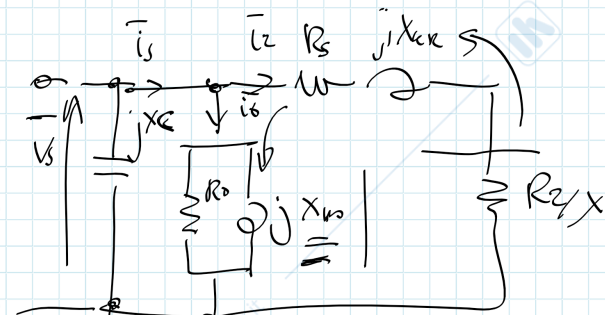 i̅s i̅2 Rs jXccr
V̅s jXc i̅0
R0 jXm0 R2/x